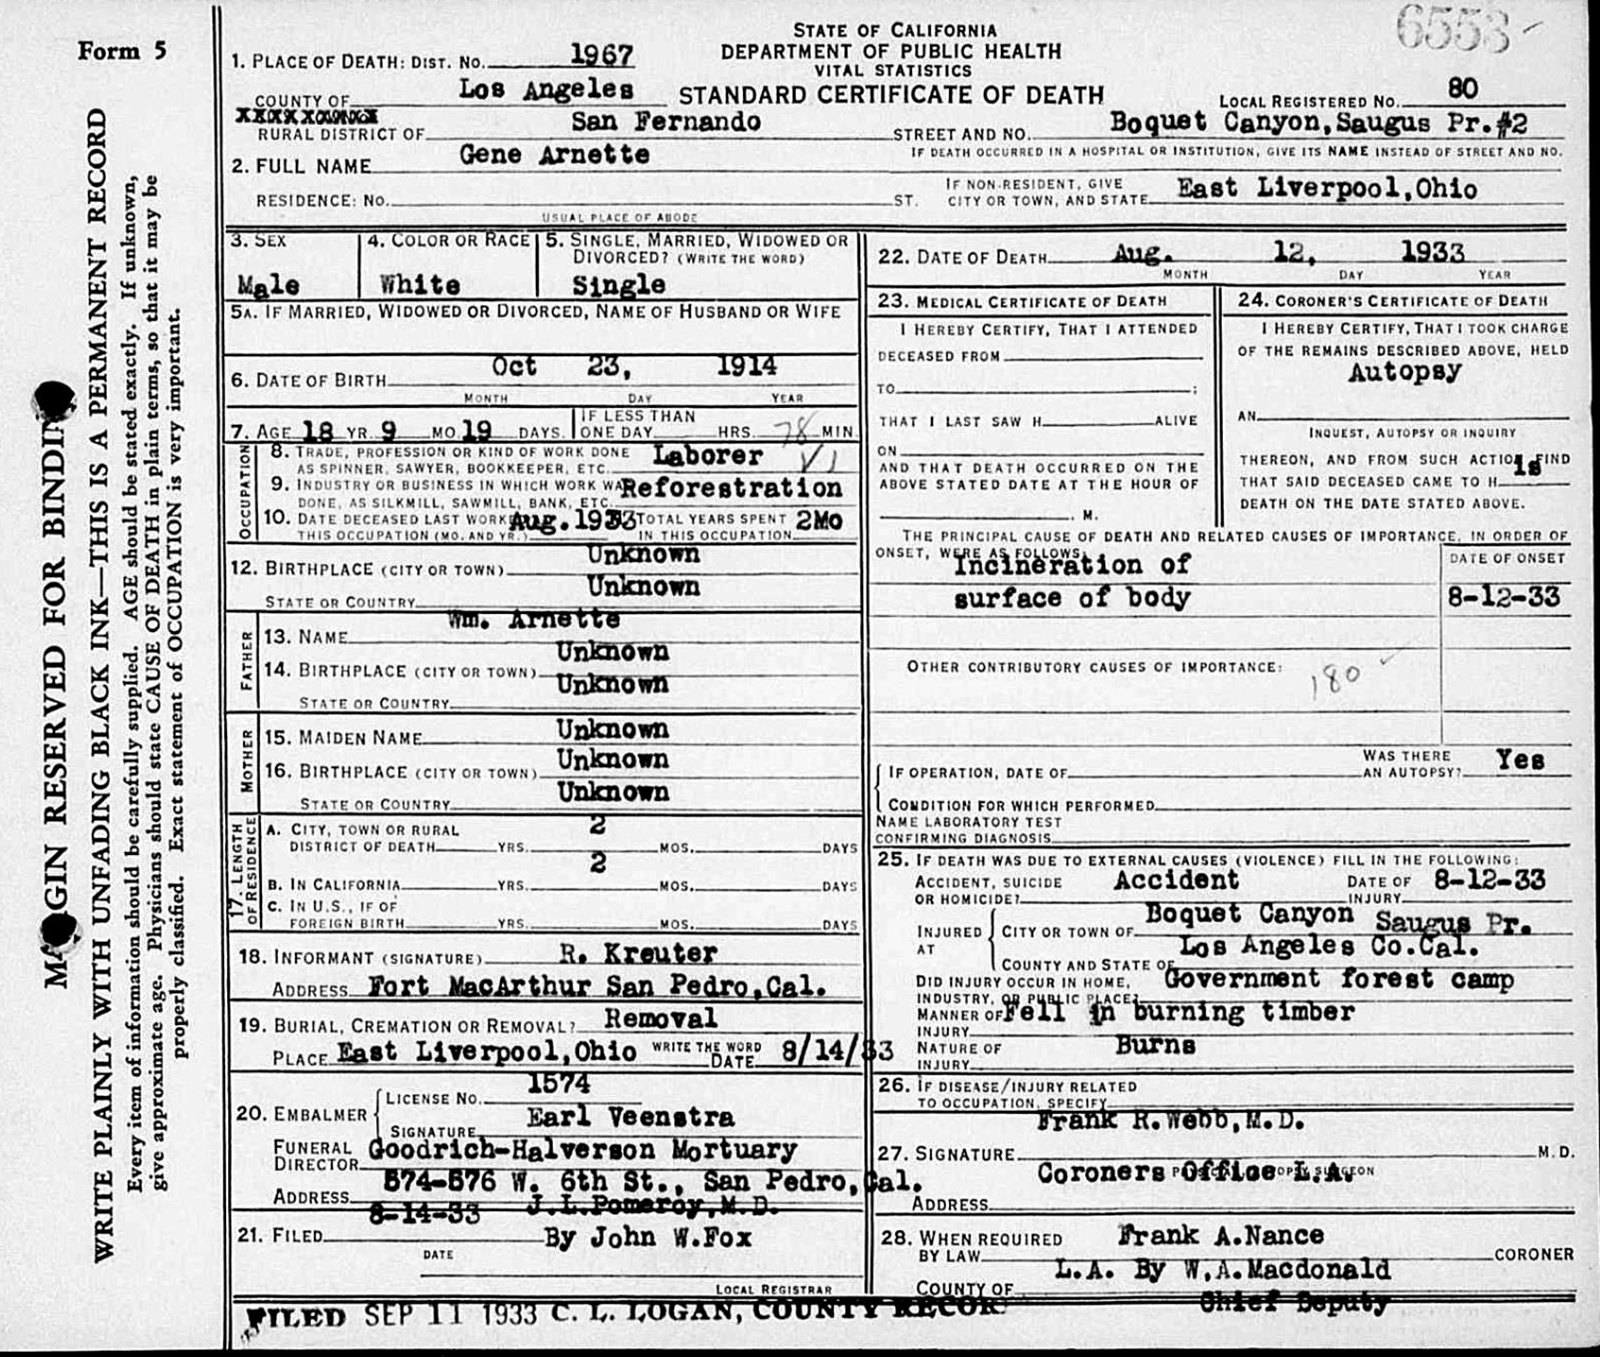 Form 5
6553
STATE OF CALIFORNIA
DEPARTMENT OF PUBLIC HEALTH
VITAL STATISTICS
STANDARD CERTIFICATE OF DEATH
1. PLACE OF DEATH: DIST. NO. 1967
COUNTY OF Los Angeles
LOCAL REGISTERED NO. 80
RURAL DISTRICT OF San Fernando STREET AND NO. Boquet Canyon, Saugus Pr. #2
IF DEATH OCCURRED IN A HOSPITAL OR INSTITUTION, GIVE ITS NAME INSTEAD OF STREET AND NO.
2. FULL NAME Gene Arnette
RESIDENCE: NO. ST. IF NON-RESIDENT, GIVE CITY OR TOWN, AND STATE East Liverpool, Ohio
USUAL PLACE OF ABODE
3. SEX Male
4. COLOR OR RACE White
5. SINGLE, MARRIED, WIDOWED OR DIVORCED? (WRITE THE WORD) Single
5A. IF MARRIED, WIDOWED OR DIVORCED, NAME OF HUSBAND OR WIFE
6. DATE OF BIRTH Oct 23, 1914
MONTH DAY YEAR
7. AGE 18 YR. 9 MO. 19 DAYS. IF LESS THAN ONE DAY HRS. 78 MIN.
OCCUPATION
8. TRADE, PROFESSION OR KIND OF WORK DONE Laborer VI
AS SPINNER, SAWYER, BOOKKEEPER, ETC.
9. INDUSTRY OR BUSINESS IN WHICH WORK WA Reforestration
DONE, AS SILKMILL, SAWMILL, BANK, ETC.
10. DATE DECEASED LAST WORK Aug. 1933 TOTAL YEARS SPENT 2Mo
THIS OCCUPATION (MO. AND YR.) IN THIS OCCUPATION
12. BIRTHPLACE (CITY OR TOWN) Unknown
STATE OR COUNTRY Unknown
FATHER
13. NAME Wm. Arnette
14. BIRTHPLACE (CITY OR TOWN) Unknown
STATE OR COUNTRY Unknown
MOTHER
15. MAIDEN NAME Unknown
16. BIRTHPLACE (CITY OR TOWN) Unknown
STATE OR COUNTRY Unknown
17. LENGTH OF RESIDENCE
A. CITY, TOWN OR RURAL DISTRICT OF DEATH YRS. 2 MOS. DAYS
B. IN CALIFORNIA YRS. 2 MOS. DAYS
C. IN U.S., IF OF FOREIGN BIRTH YRS. MOS. DAYS
18. INFORMANT (SIGNATURE) R. Kreuter
ADDRESS Fort MacArthur San Pedro, Cal.
19. BURIAL, CREMATION OR REMOVAL? Removal
PLACE East Liverpool, Ohio WRITE THE WORD DATE 8/14/33
20. EMBALMER LICENSE NO. 1574
SIGNATURE Earl Veenstra
FUNERAL DIRECTOR Goodrich-Halverson Mortuary
ADDRESS 574-576 W. 6th St., San Pedro, Cal.
21. FILED 8-14-33 J.L.Pomeroy, M.D.
By John W. Fox
DATE
LOCAL REGISTRAR
FILED SEP 11 1933 C. L. LOGAN, COUNTY RECOR
22. DATE OF DEATH Aug. 12, 1933
MONTH DAY YEAR
23. MEDICAL CERTIFICATE OF DEATH
I HEREBY CERTIFY, THAT I ATTENDED
DECEASED FROM
TO ;
THAT I LAST SAW H ALIVE
ON
AND THAT DEATH OCCURRED ON THE
ABOVE STATED DATE AT THE HOUR OF
. M.
24. CORONER'S CERTIFICATE OF DEATH
I HEREBY CERTIFY, THAT I TOOK CHARGE
OF THE REMAINS DESCRIBED ABOVE, HELD
Autopsy
AN
INQUEST, AUTOPSY OR INQUIRY
THEREON, AND FROM SUCH ACTION FIND
THAT SAID DECEASED CAME TO H is
DEATH ON THE DATE STATED ABOVE.
THE PRINCIPAL CAUSE OF DEATH AND RELATED CAUSES OF IMPORTANCE, IN ORDER OF
ONSET, WERE AS FOLLOWS: DATE OF ONSET
Incineration of
surface of body 8-12-33
OTHER CONTRIBUTORY CAUSES OF IMPORTANCE: 180
IF OPERATION, DATE OF WAS THERE AN AUTOPSY? Yes
CONDITION FOR WHICH PERFORMED
NAME LABORATORY TEST
CONFIRMING DIAGNOSIS
25. IF DEATH WAS DUE TO EXTERNAL CAUSES (VIOLENCE) FILL IN THE FOLLOWING:
ACCIDENT, SUICIDE OR HOMICIDE? Accident DATE OF INJURY 8-12-33
INJURED AT CITY OR TOWN OF Boquet Canyon Saugus Pr.
COUNTY AND STATE OF Los Angeles Co. Cal.
DID INJURY OCCUR IN HOME, INDUSTRY, OR PUBLIC PLACE? Government forest camp
MANNER OF INJURY Fell in burning timber
NATURE OF INJURY Burns
26. IF DISEASE/INJURY RELATED
TO OCCUPATION, SPECIFY
27. SIGNATURE Frank R. Webb, M.D. M.D.
ADDRESS Coroners Office L.A.
28. WHEN REQUIRED BY LAW Frank A. Nance CORONER
COUNTY OF L.A. By W.A. Macdonald
Chief Deputy
MARGIN RESERVED FOR BINDIN
WRITE PLAINLY WITH UNFADING BLACK INK—THIS IS A PERMANENT RECORD
Every item of information should be carefully supplied. AGE should be stated exactly. If unknown,
give approximate age. Physicians should state CAUSE OF DEATH in plain terms, so that it may be
properly classified. Exact statement of OCCUPATION is very important.